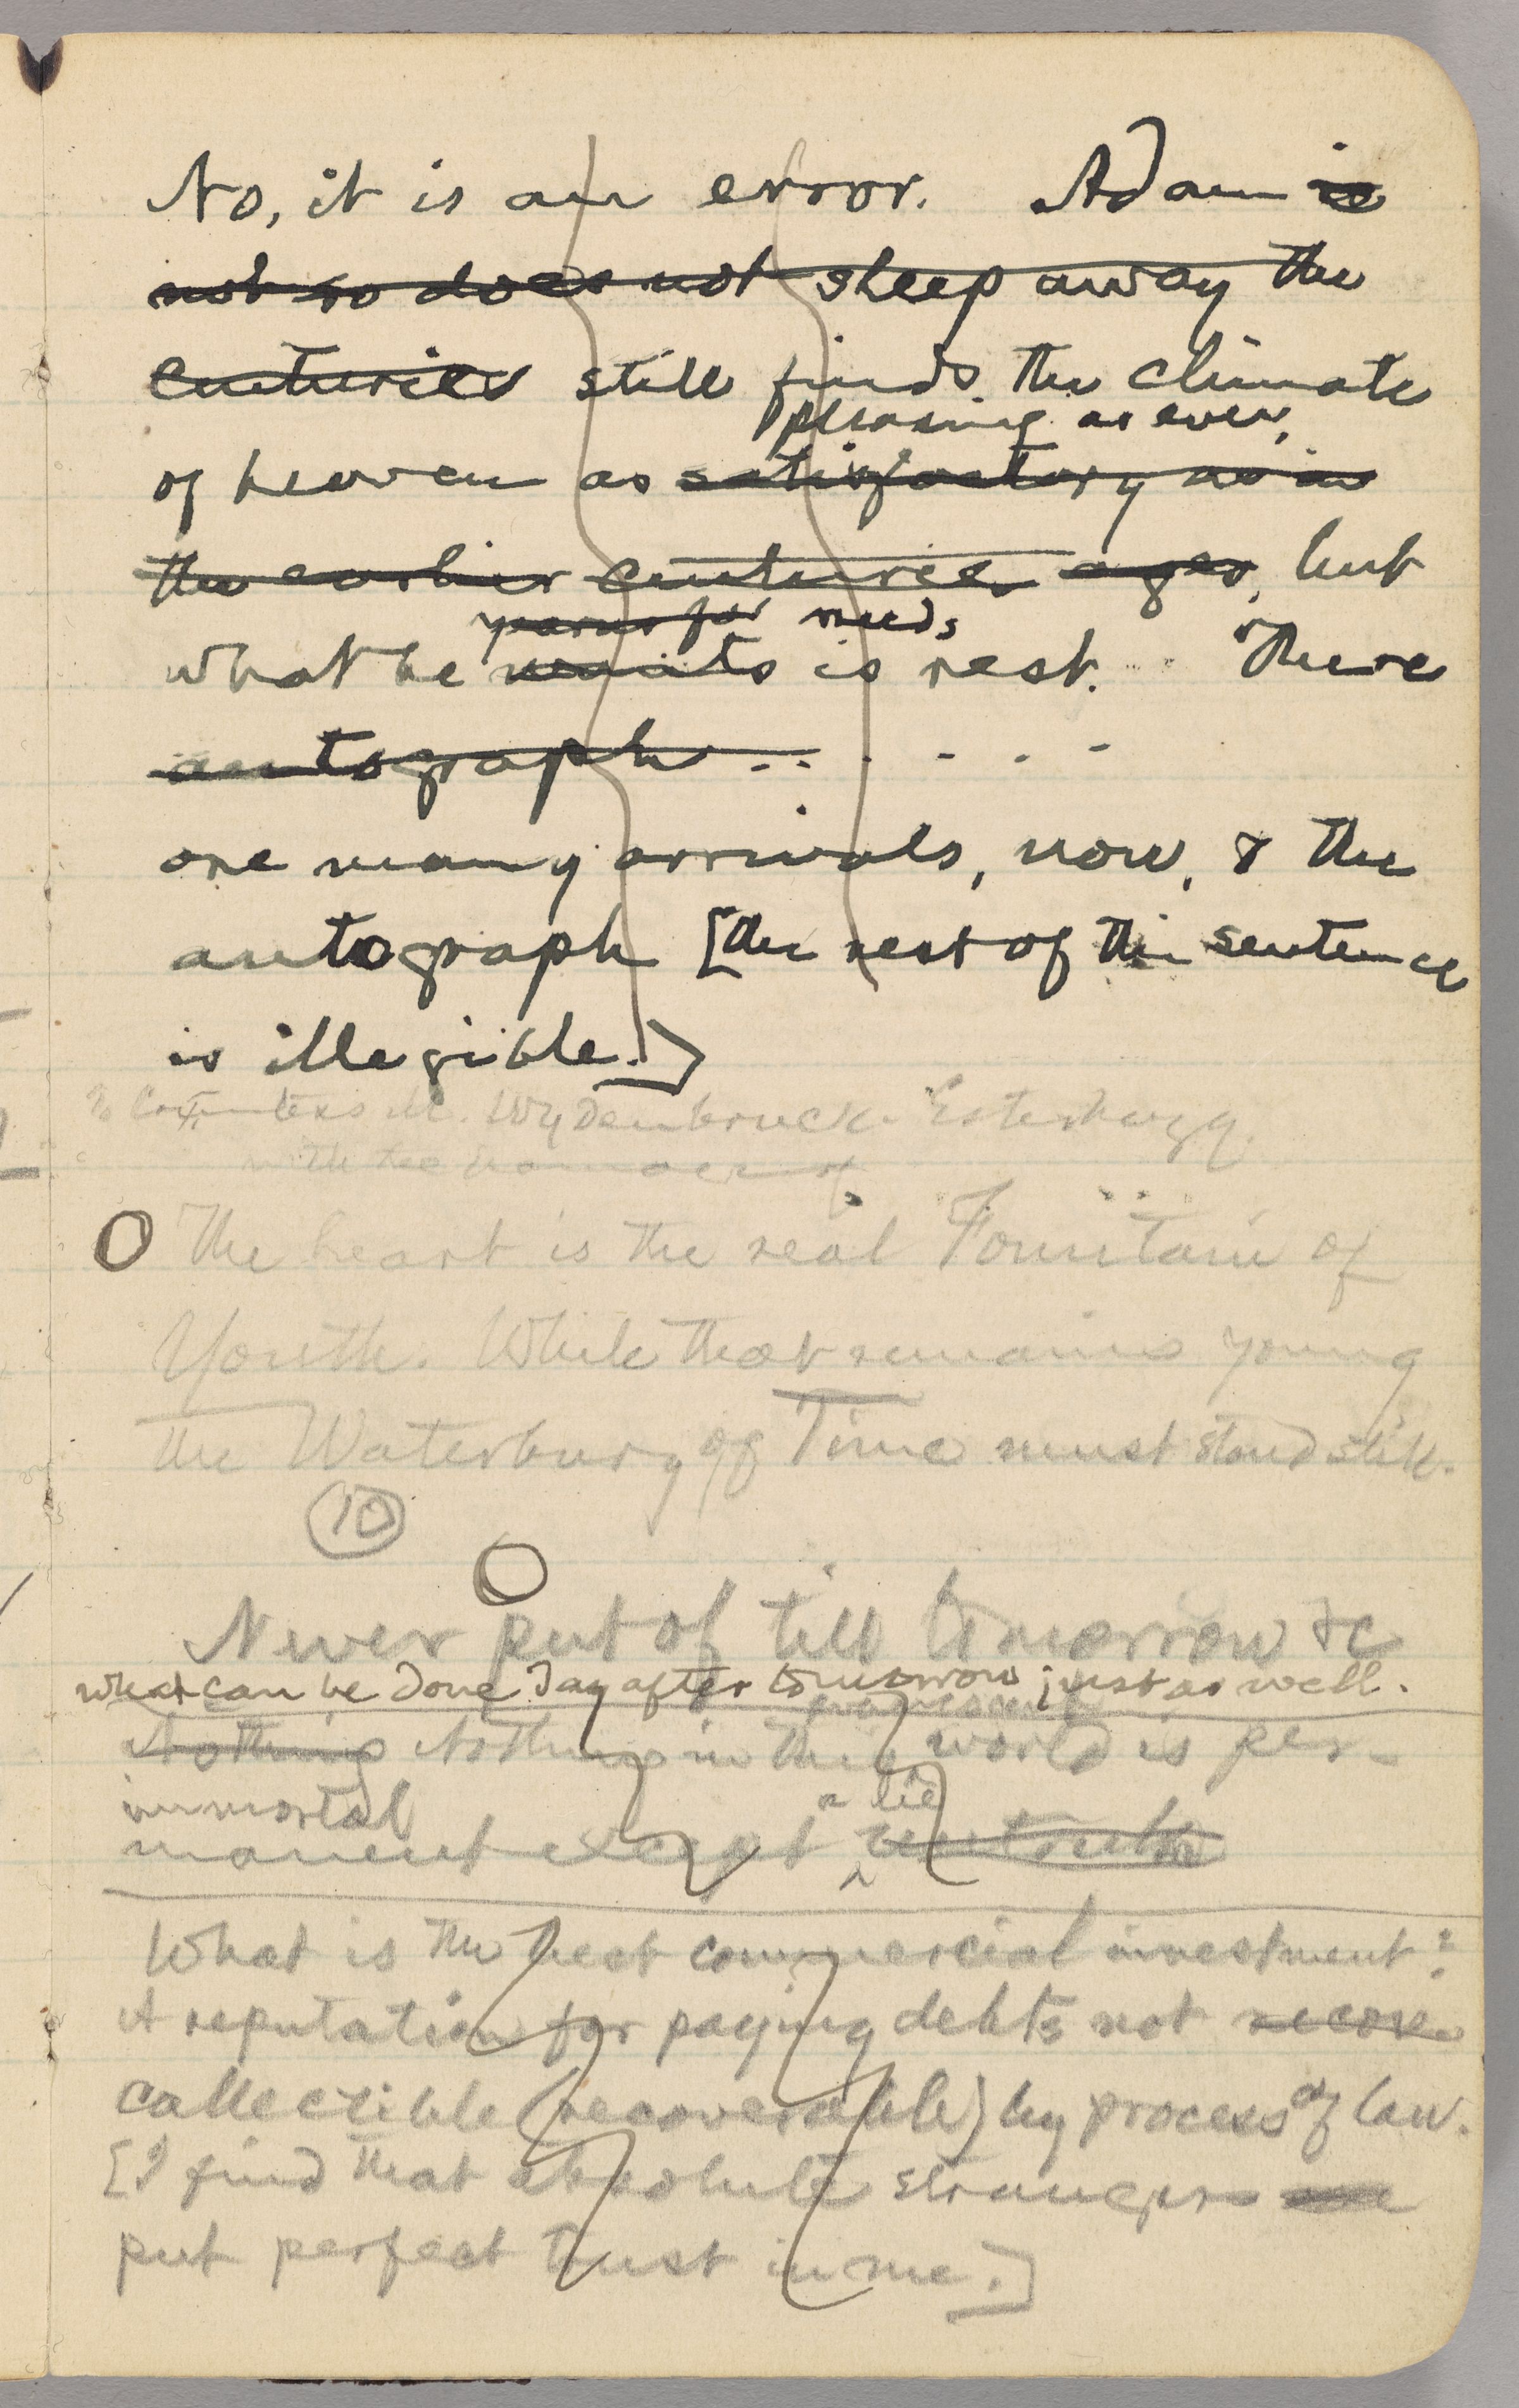 No, it is an error. Adam is
not so does not sleep away the
centuries still finds the climate
pleasing as ever,
of heaven as satisfactory as in
the earlier centuries ages, but
yearns for needs
what he wants is rest. There
autograph - - . - - -
are many arrivals, now, & the
autograph [the rest of the sentence
is illegible.]
To Countess M. Wydenbruck-Esterhazy.
with the
The heart is the real Fountain of
Youth. While that remains young
the Waterbury of Time must stand still.
10
Never put of till tomorrow &c
what can be done day after tomorrow just as well.
evanescent
Nothing Nothing in this world is per-
immortal a lie
manent except untruth
What is the best commercial investment?
A reputation for paying debts not recov
collectible (recoverable) by process of law.
[I find that absolute strangers are
put perfect trust in me.]